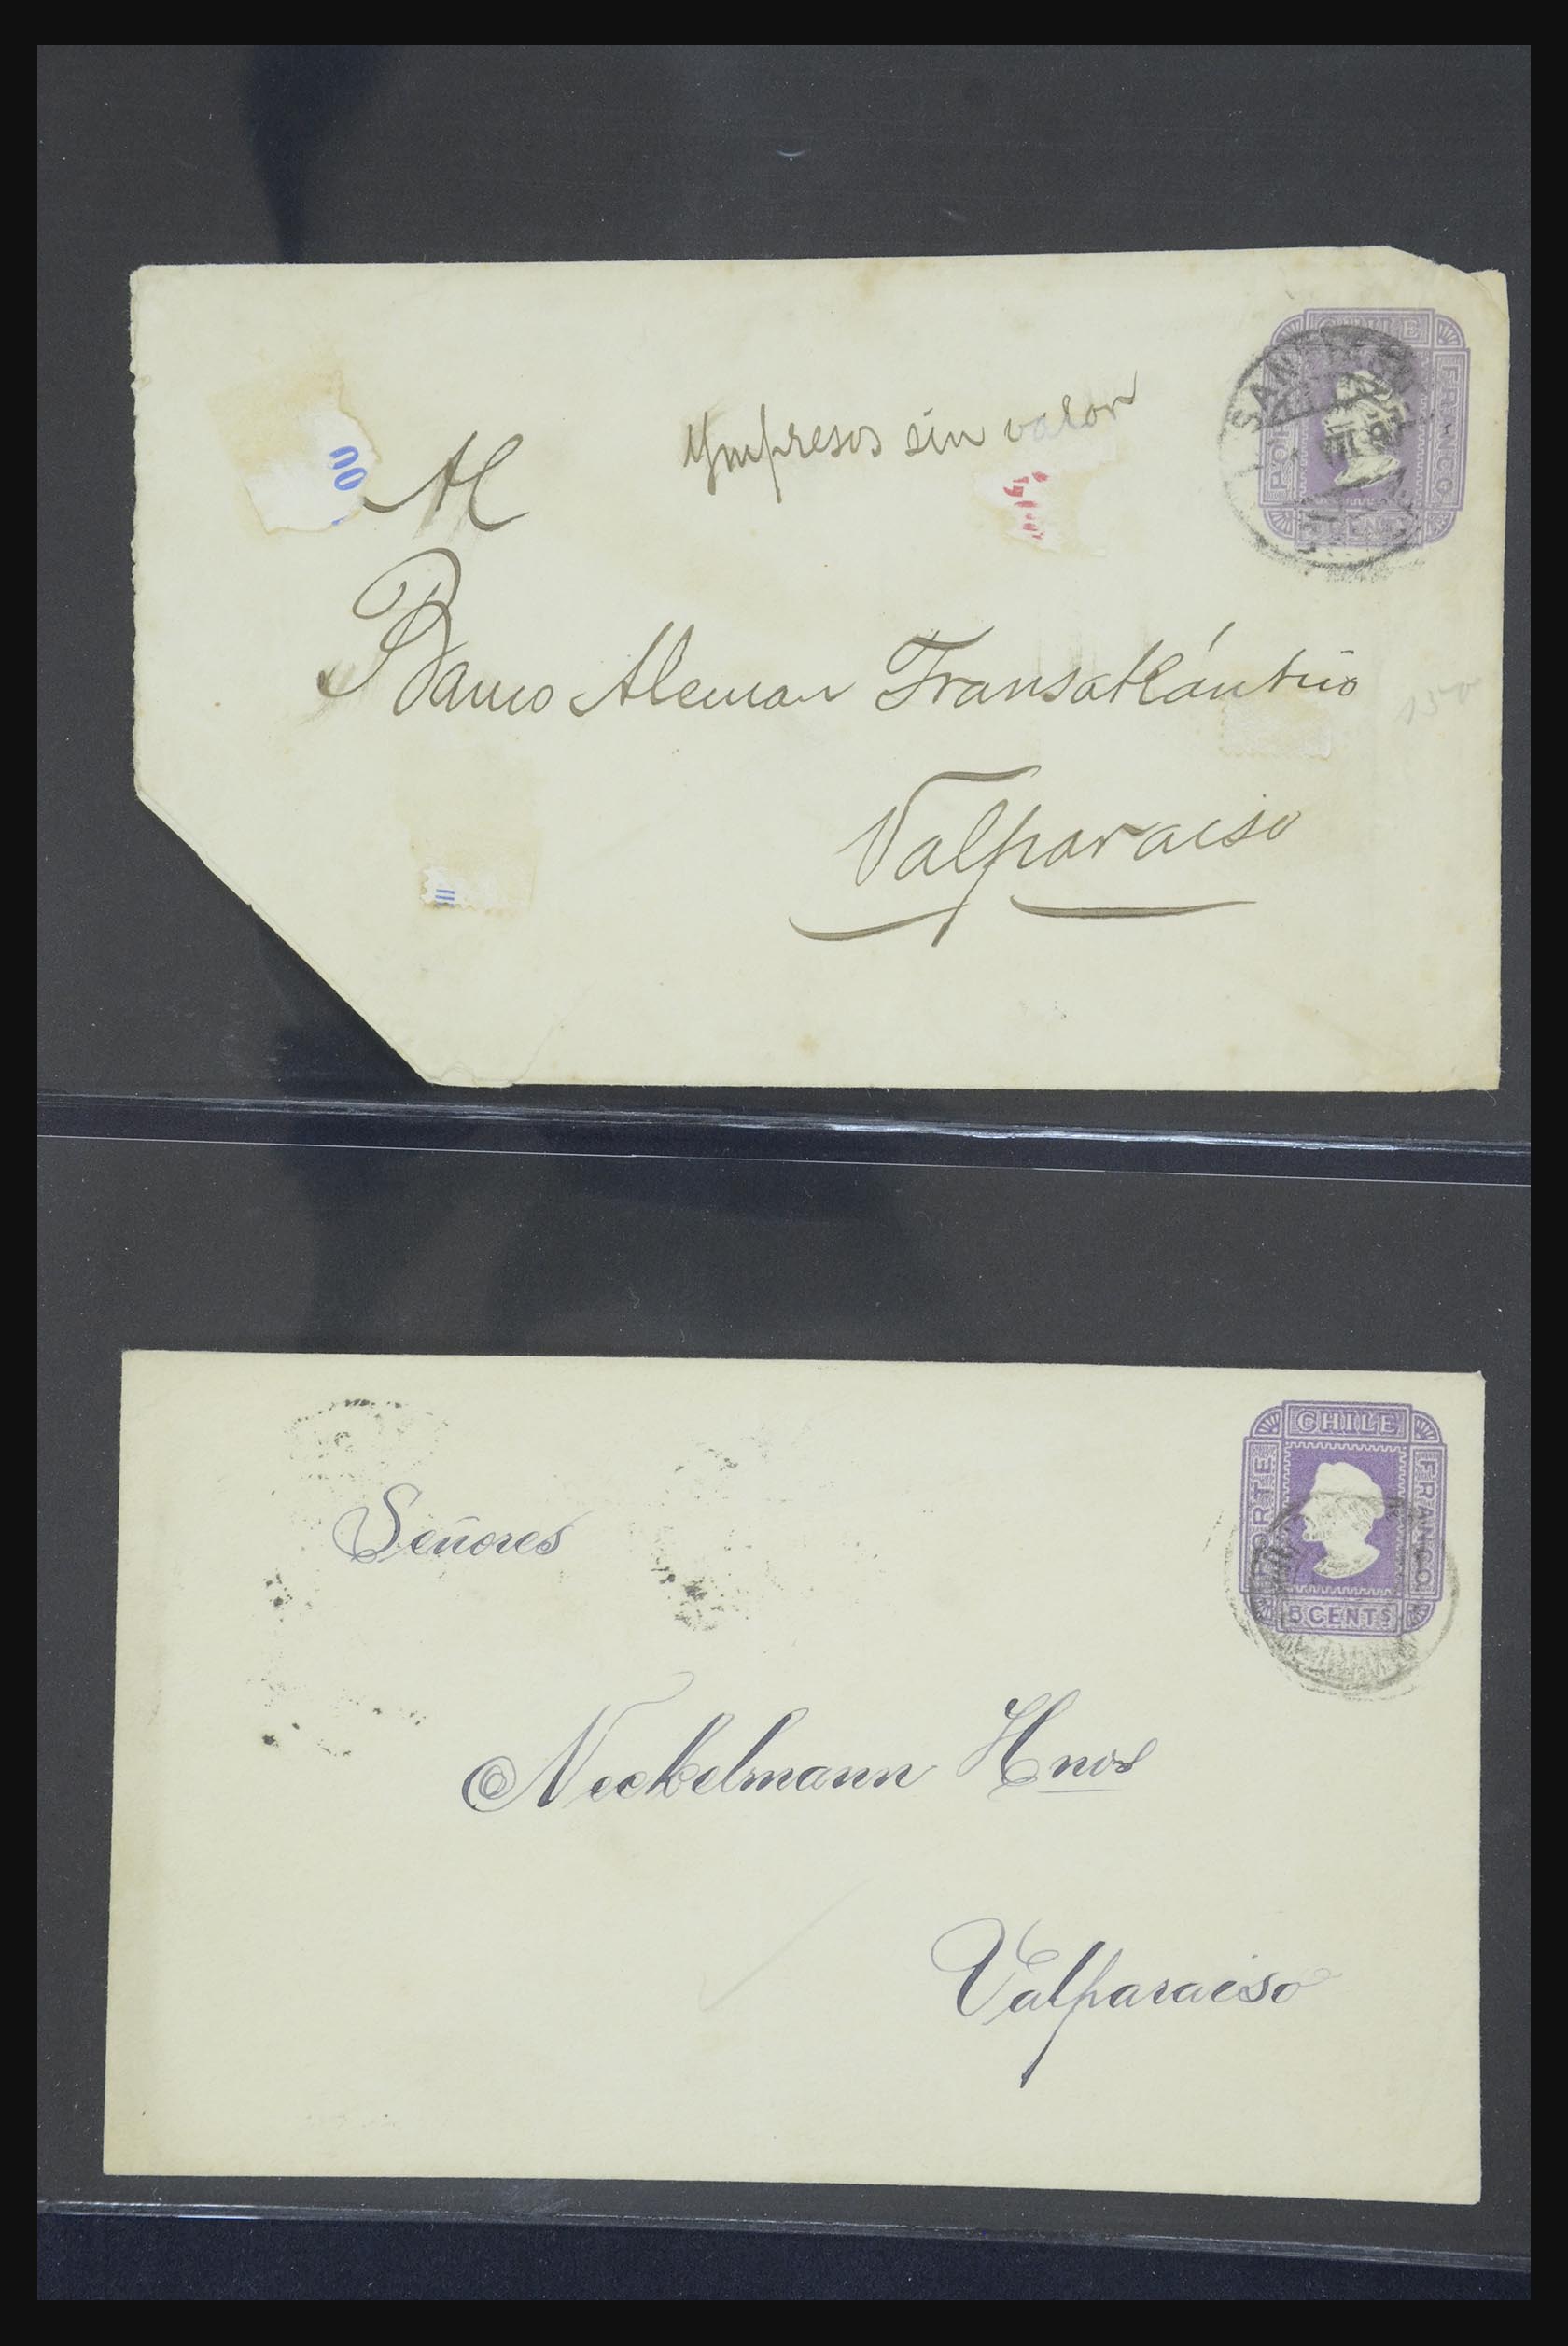 CHILE
FRANCO
SANTIAGO
Ympresos sin valor
00
Al
Banco Aleman Transatlántico
150
Valparaiso
CHILE
PORTE
FRANCO
5 CENTS
Señores
Neckelmann Hnos
Valparaiso